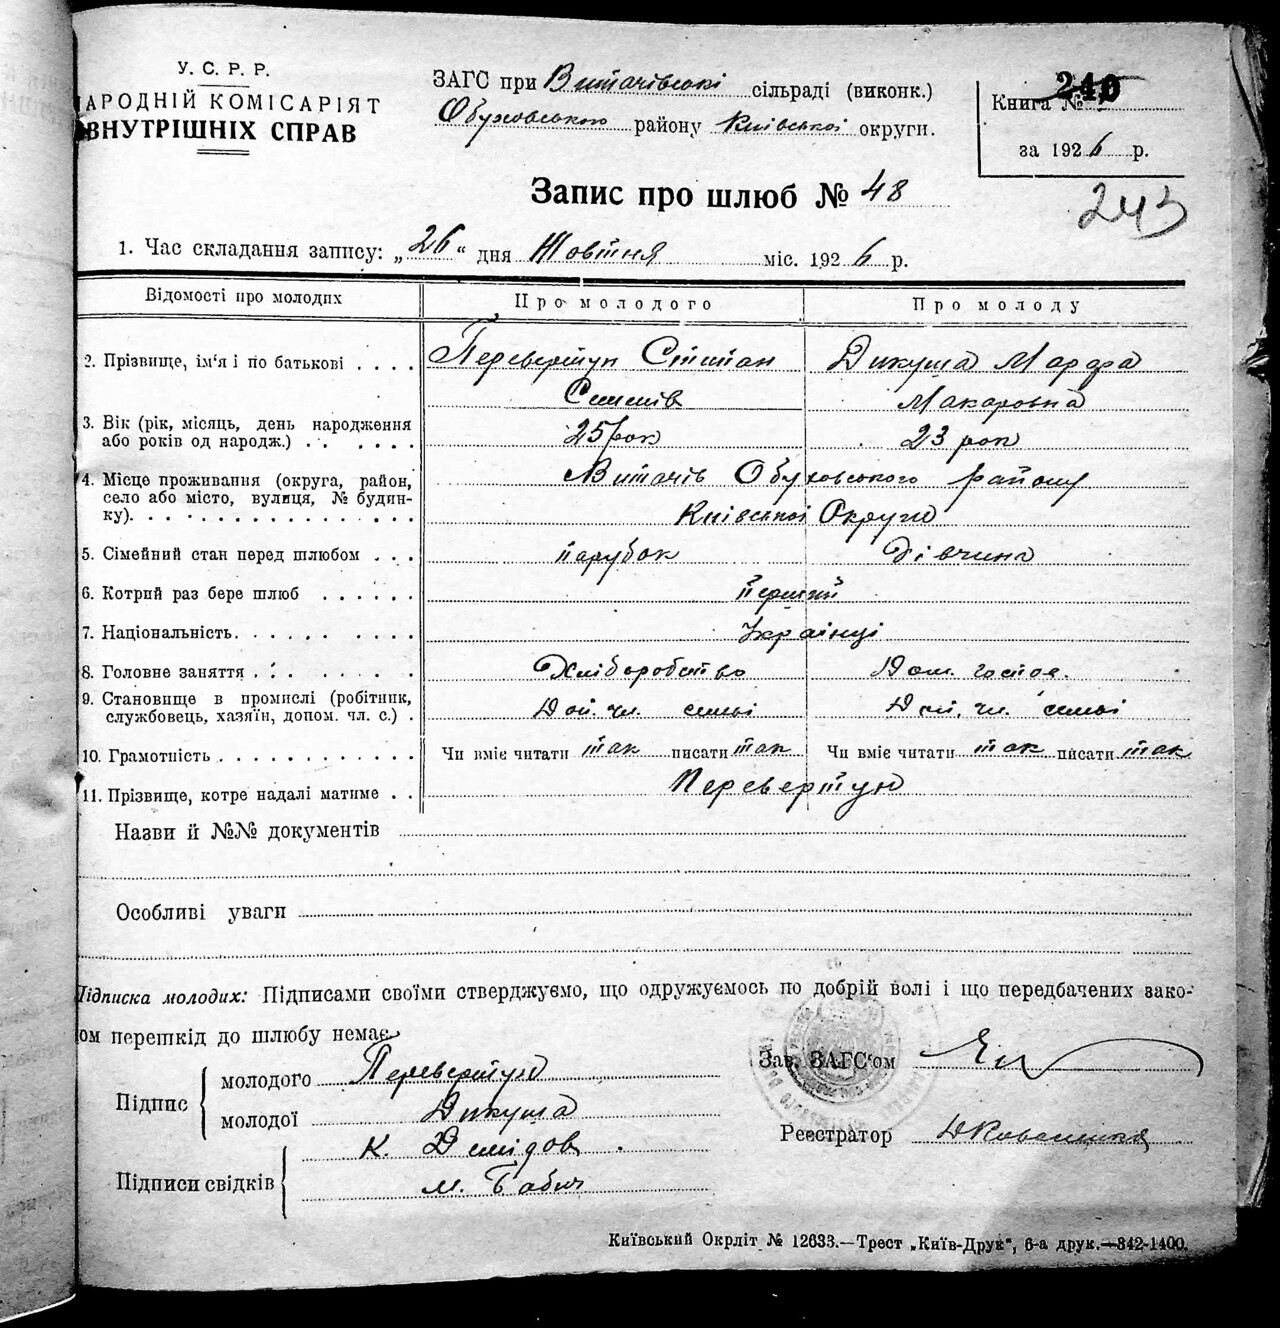 У. С. Р. Р.
АРОДНІЙ КОМІСАРІЯТ
ВНУТРІШНІХ СПРАВ
ЗАГС при Витачівські сільраді (виконк.)
Обуховського району Київської округи.
Книга № 240
за 1926 р.
243
Запис про шлюб № 48
1. Час складання запису: „26“ дня Жовтня міс. 1926 р.
Відомості про молодих Про молодого Про молоду
2. Прізвище, ім'я і по батькові . . . . Перевертун Степан Дикуша Марфа
Семенів Макаровна
3. Вік (рік, місяць, день народження
або років од народж.) . . . . . . 25 рок 23 рок
4. Місце проживання (округа, район,
село або місто, вулиця, № будин-
ку). Витачів Обуховського району
Київської Округи
5. Сімейний стан перед шлюбом . . . парубок Дівчина
6. Котрий раз бере шлюб . . . . . . перший
7. Національність. Українці
8. Головне заняття . Хліборобство Дом. господ.
9. Становище в промислі (робітник,
службовець, хазяїн, допом. чл. с.) . Доп. чл. семьі Доп. чл. семьі
10. Грамотність Чи вміє читати так писати так Чи вміє читати так писати так
11. Прізвище, котре надалі матиме . . Перевертун
Назви й №№ документів
Особливі уваги
Підписка молодих: Підписами своїми стверджуємо, що одружуємось по добрій волі і що передбачених зако-
ом перешкід до шлюбу немає
Підпис
молодого Перевертун
молодої Дикуша
Підписи свідків
К. Демідов
М. Бабич
Зав. ЗАГС'ом
Реєстратор
Київський Окрліт № 12633.—Трест „Київ-Друк“, 6-а друк.—342-1400.